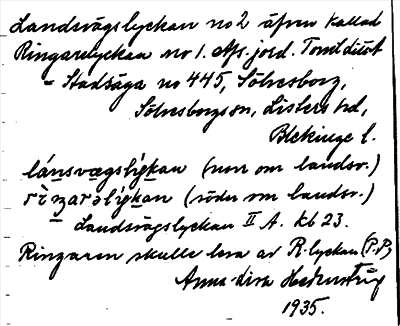 Landsvägslyckan no 2 även kallad
Ringarelyckan no 1. Afs. jord. Tomt ditot
- Stadsäga no 445, Sölvesborg,
Sölvesborgs sn, Listers hd,
Blekinge l.
lánsvægslýkan (norr om landsv.)
rìŋarəlýkan (söder om landsv.)
- Landsvägslyckan II A. kb 23.
Ringaren skulle leva av R. lyckan (P.P.)
Anna-Lisa
1935.